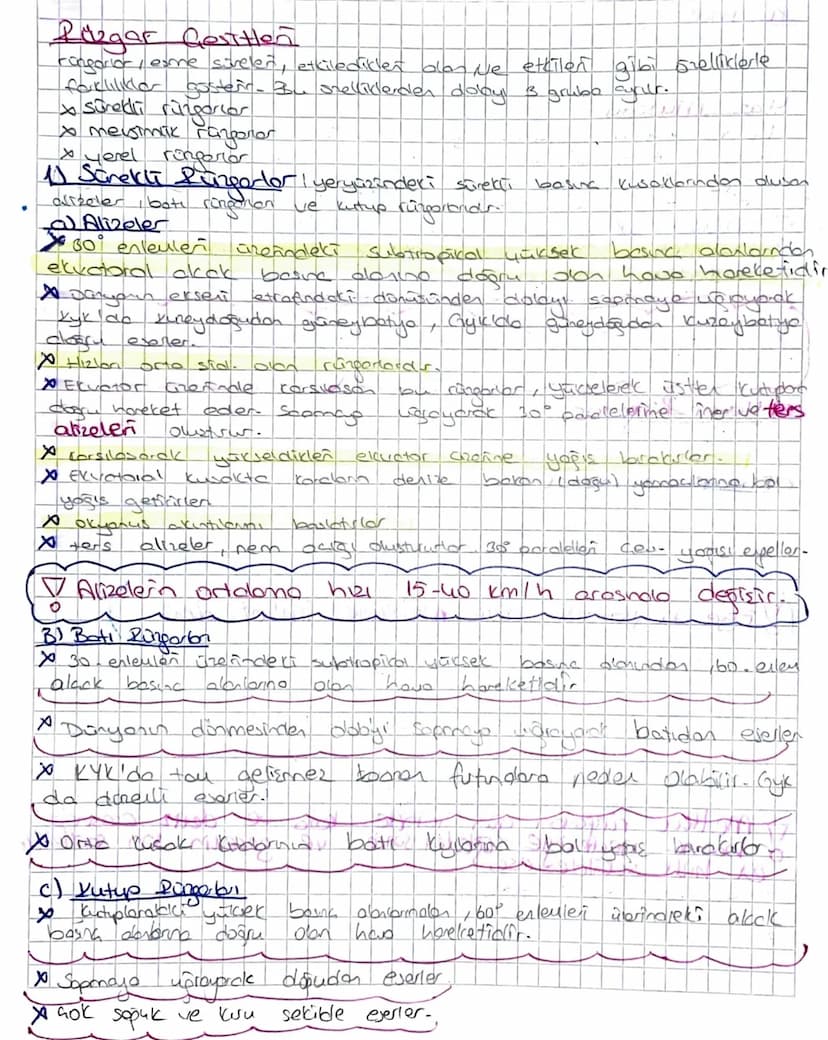 Rüzgar Çeşitleri
rüzgarlar, esme süreleri, etkiledikleri alan ve etkileri gibi özelliklerle
farklılıklar gösterir. Bu özelliklerden dolayı 3 gruba ayrılır.
x sürekli rüzgarlar
x mevsimlik rüzgarlar
x yerel rüzgarlar
1) Sürekli Rüzgarlar / yeryüzündeki sürekli basınç kuşaklarından oluşan
alizeler, batı rüzgarları ve kutup rüzgarlarıdır.
a) Alizeler
x 30° enlemleri üzerindeki subtropikal yüksek basınç alanlarından
ekvatoral alçak basınç alanına doğru olan hava hareketidir
x Dünyanın ekseni etrafındaki dönüşünden dolayı sapmaya uğrayarak
KYK'da kuzeydoğudan güneybatıya, GYK'da güneydoğudan kuzeybatıya
doğru eserler.
x Hızları orta olan rüzgarlardır.
x Ekvator üzerinde karşılaşan bu rüzgarlar, yükselerek üstten kutuplara
doğru hareket eder. Sapmaya uğrayarak 30° paralellerine iner ve ters
alizeleri oluşturur.
x karşılaşarak yükseldikleri ekvator üzerine yağış bırakırlar.
x Ekvatoral kuşakta karaların denize bakan (doğu) yamaçlarına bol
yağış getirirler
x okyanus akıntılarını başlatırlar
x ters alizeler, nem açığı oluştururlar 30° paralelleri yağışı engeller.
! Alizelerin ortalama hızı 15-40 km/h arasında değişir.
B) Batı Rüzgarları
x 30. enlemleri üzerindeki subtropikal yüksek basınç alanından, 60. enlem
alçak basınç alanlarına olan hava hareketidir
x Dünyanın dönmesinden dolayı sapmaya uğrayarak batıdan eserler
x KYK'da fırtınalara neden olabilir. Gyk
da eserler.
x Orta kuşak kıtalarının batı kıyılarına bol yağış bırakırlar.
c) Kutup Rüzgarları
x kutuplardaki yüksek basınç alanlarından, 60° enlemleri üzerindeki alçak
basınç alanlarına doğru olan hava hareketidir.
x Sapmaya uğrayarak doğudan eserler
x Çok soğuk ve kuru şekilde eserler.